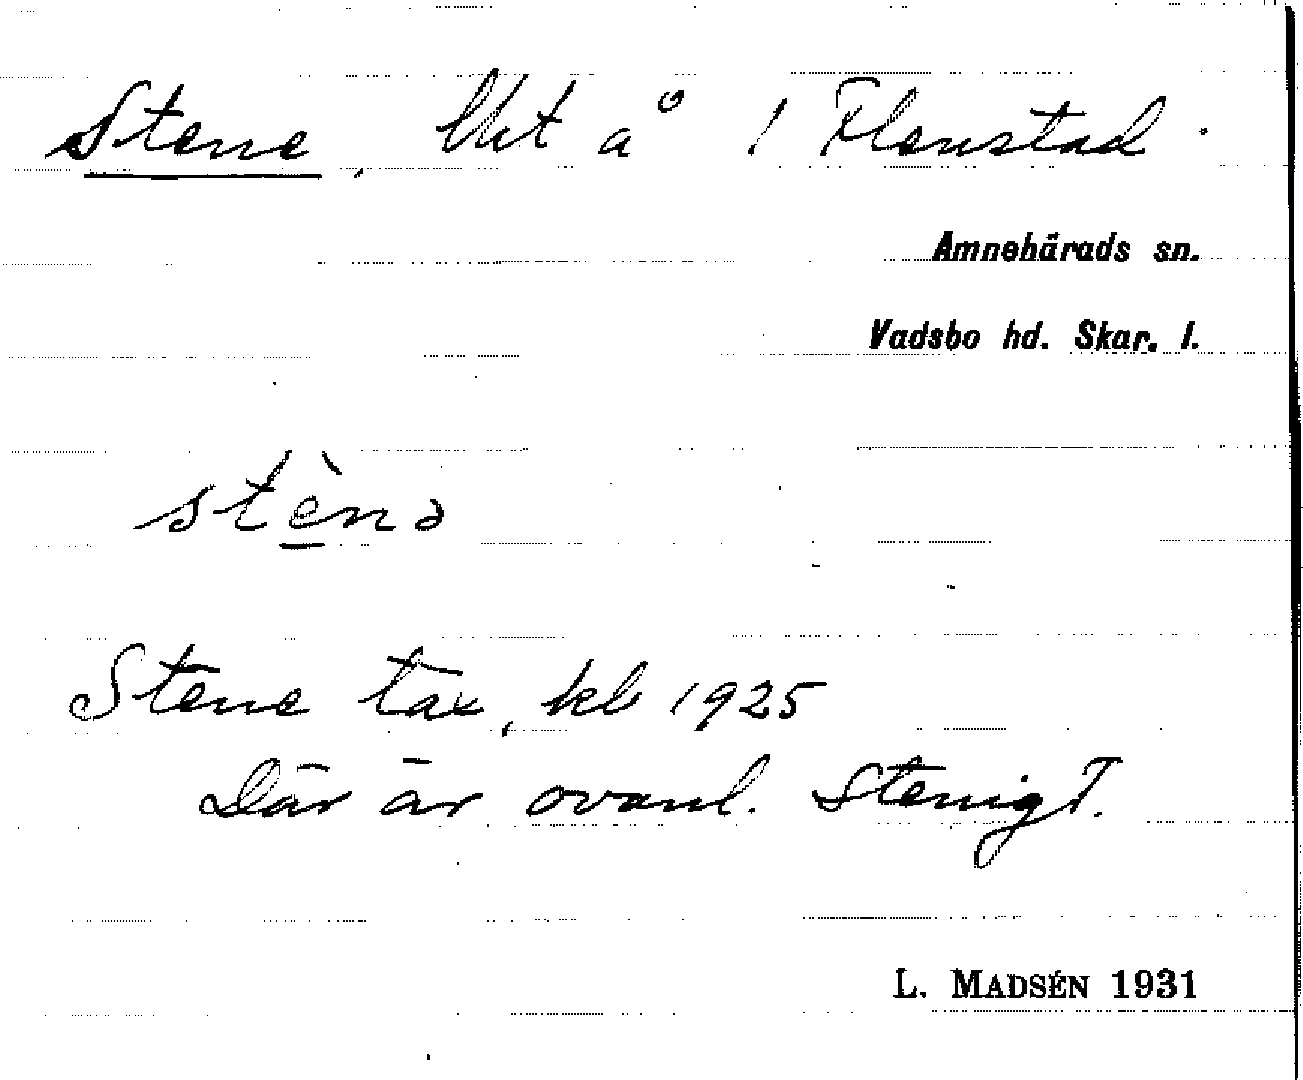 Stene, lht å / Flenstad.
Amnehärads sn.
Vadsbo hd. Skar. l.
stènə
Stene tax, kb 1925
Där är ovanl. stenigt.
L. MADSÉN 1931